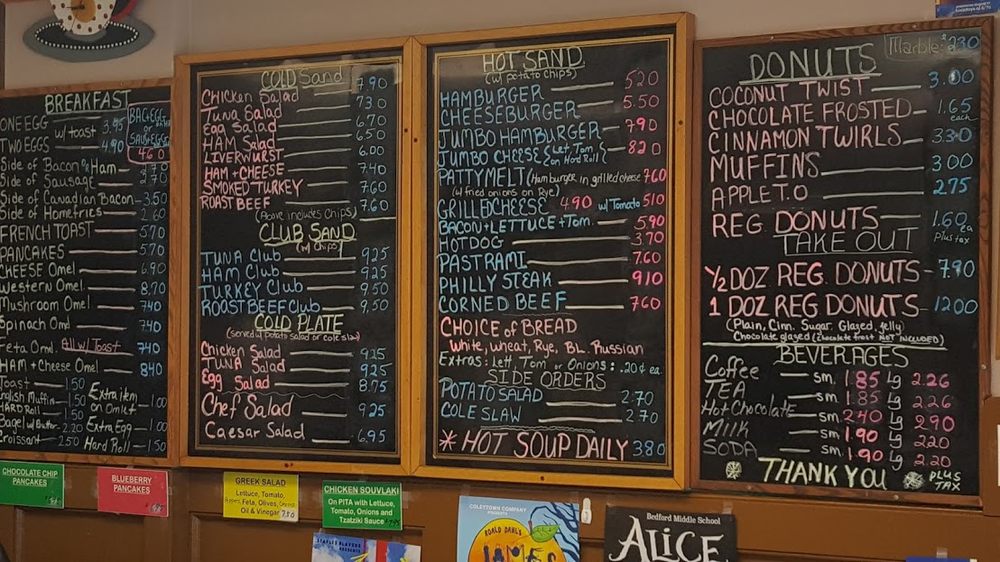 BREAKFAST
ONE EGG w/toast 3.95
TWO EGGS 4.90
BAG-EGG
or
SAUS-EGG
4.60
Side of Bacon Ham
Side of Sausage 2.70
Side of Canadian Bacon 3.50
Side of Homefries 2.60
FRENCH TOAST 5.70
PANCAKES 5.70
CHEESE Omel 6.90
Western Omel 8.70
Mushroom Omel 7.40
Spinach Oml 7.40
Feta Oml. All w/Toast 7.40
HAM + Cheese Oml 8.40
Toast 1.50
English Muffin 1.50
HARD Roll 1.50
Bagel w/Butter 2.20
Croissant 2.50
Extra item
on Omlet 1.00
Extra Egg 1.00
Hard Roll 1.50
COLD Sand
Chicken Salad 7.90
Tuna Salad 7.30
Egg Salad 6.70
HAM Salad 6.50
LIVERWURST 6.00
HAM + CHEESE 7.40
SMOKED TURKEY 7.60
ROAST BEEF 7.60
(Above includes Chips)
CLUB SAND
(w/chips)
TUNA Club 9.25
HAM Club 9.25
TURKEY Club 9.50
ROAST BEEF Club 9.50
COLD PLATE
(served w/potato salad or cole slaw)
Chicken Salad 9.25
TUNA SALAD 9.25
Egg SALAD 8.75
Chef Salad 9.25
Caesar Salad 6.95
HOT SAND
(w/ potato chips)
HAMBURGER 5.20
CHEESEBURGER 5.50
JUMBO HAMBURGER 7.90
JUMBO CHEESE (Lett, Tom on Hard Roll) 8.20
PATTYMELT (Hamburger in grilled cheese 7.60
w/fried onions on Rye)
GRILLED CHEESE 4.90 w/Tomato 5.10
BACON + LETTUCE + Tom. 5.90
HOT DOG 3.70
PASTRAMI 7.60
PHILLY STEAK 9.10
CORNED BEEF 7.60
CHOICE of BREAD
White, wheat, Rye, BL. Russian
Extras: Lett, Tom or Onions: .20¢ ea.
SIDE ORDERS
POTATO SALAD 2.70
COLE SLAW 2.70
* HOT SOUP DAILY 3.80
Marble: 2.30
DONUTS
COCONUT TWIST 3.00
CHOCOLATE FROSTED 1.65
each
CINNAMON TWIRLS 3.30
MUFFINS 3.00
APPLE T.O 2.75
REG DONUTS 1.60
ea
Plus tax
TAKE OUT
1/2 DOZ REG. DONUTS 7.90
1 DOZ REG DONUTS 12.00
(Plain, Cinn. Sugar. Glazed, Jelly)
Chocolate glazed (Chocolate frost NOT INCLUDED)
BEVERAGES
Coffee sm. 1.85 Lg 2.26
TEA sm. 1.85 Lg 2.26
Hot Chocolate sm 2.40 Lg 2.90
MILK sm 1.90 Lg 2.20
SODA sm 1.90 Lg 2.20
THANK YOU
PLUS
TAX
CHOCOLATE CHIP
PANCAKES
BLUEBERRY
PANCAKES
GREEK SALAD
Lettuce, Tomato,
Feta, Olives,
Oil & Vinegar 7.50
CHICKEN SOUVLAKI
On PITA with Lettuce,
Tomato, Onions and
Tzatziki Sauce
STAPLES PLAYERS
COLEYTOWN COMPANY
PRESENTS
ROALD DAHL'S
JAMES
Bedford Middle School
ALiCE